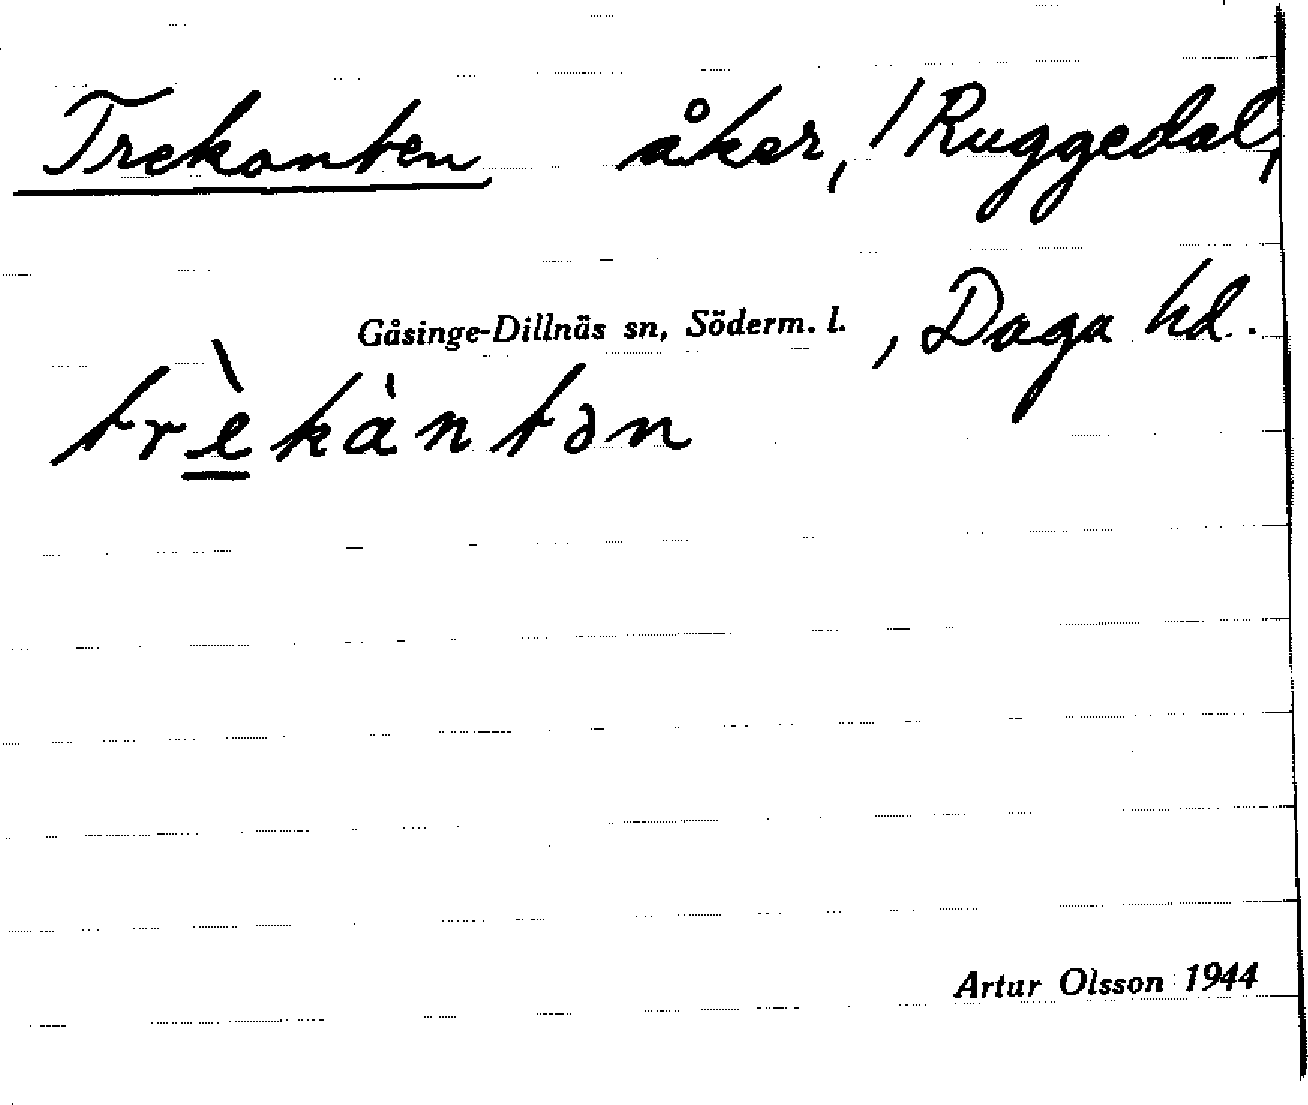 Trekanten åker, /Ruggedal,
Gåsinge-Dillnäs sn, Söderm. l. , Daga hd.
trèkàntən
Artur Olsson 1944